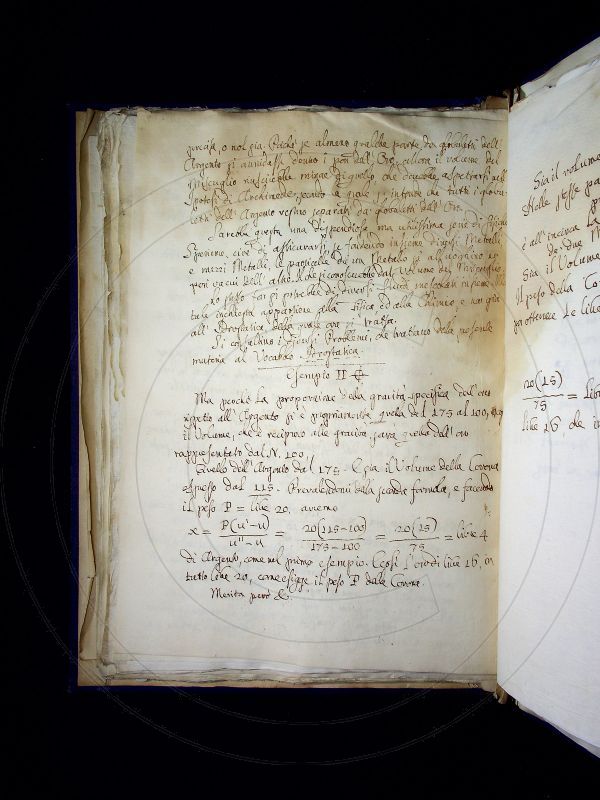 o nol già. Poichè se almeno qualche parte de' globuletti dell'
Argento si annidasse dentro i pori dell' Oro, allora il volume del
miscuglio riuscirebbe minore di quello che dovrebbe aspettarsi nell'
Ipotesi di Archimede, secondo la quale s' intende che tutti i globu
letti dell' Argento restino separati da' globuletti dell' Oro.
Sarebbe questa una dispendiosa, ma utilissima serie di
Sperienze, cioè di assicurarsi, se fondendo insieme diversi Metalli,
e mezzi Metalli, le particelle di un Metallo si
pori vacui dell' altro. Il che si conoscerebbe dal Volume del Miscuglio.
Lo stesso far si potrebbe de' diversi fluidi mescolati insieme.
tale inchiesta appartiene alla Fisica, ed alla Chimica e non già
all' Idrostatica, della quale ora si tratta.
Si consultino i diversi Problemi, che trattano della presente
materia al Vocabolo Idrostatica.
Esempio II
Ma perchè la proporzione della gravità specifica dell' oro
rispetto all' Argento si è propriamente quella del 175 al 100,
il Volume, che è reciproco alle gravità, sarà quello dell' oro
rappresentato dal N. 100.
Quello dell' Argento dal 175. E già il Volume della Corona
espresso dal 115. Prevalendomi della seconda formula, e facendo
il peso P = libre 20, avremo
x = P(u'-u) / u''-u = 20(115-100) / 175-100 = 20(15) / 75 = libre 4
di Argento, come nel primo esempio. E così l' oro di libre 16, in
tutto libre 20, come esigge il peso P della Corona.
Merita però &c.
Sia il volume
Nelle stesse
è all' incirca la
Sia il Volume
Il peso della Co
20(15) / 75 = libr
libre 16, che in